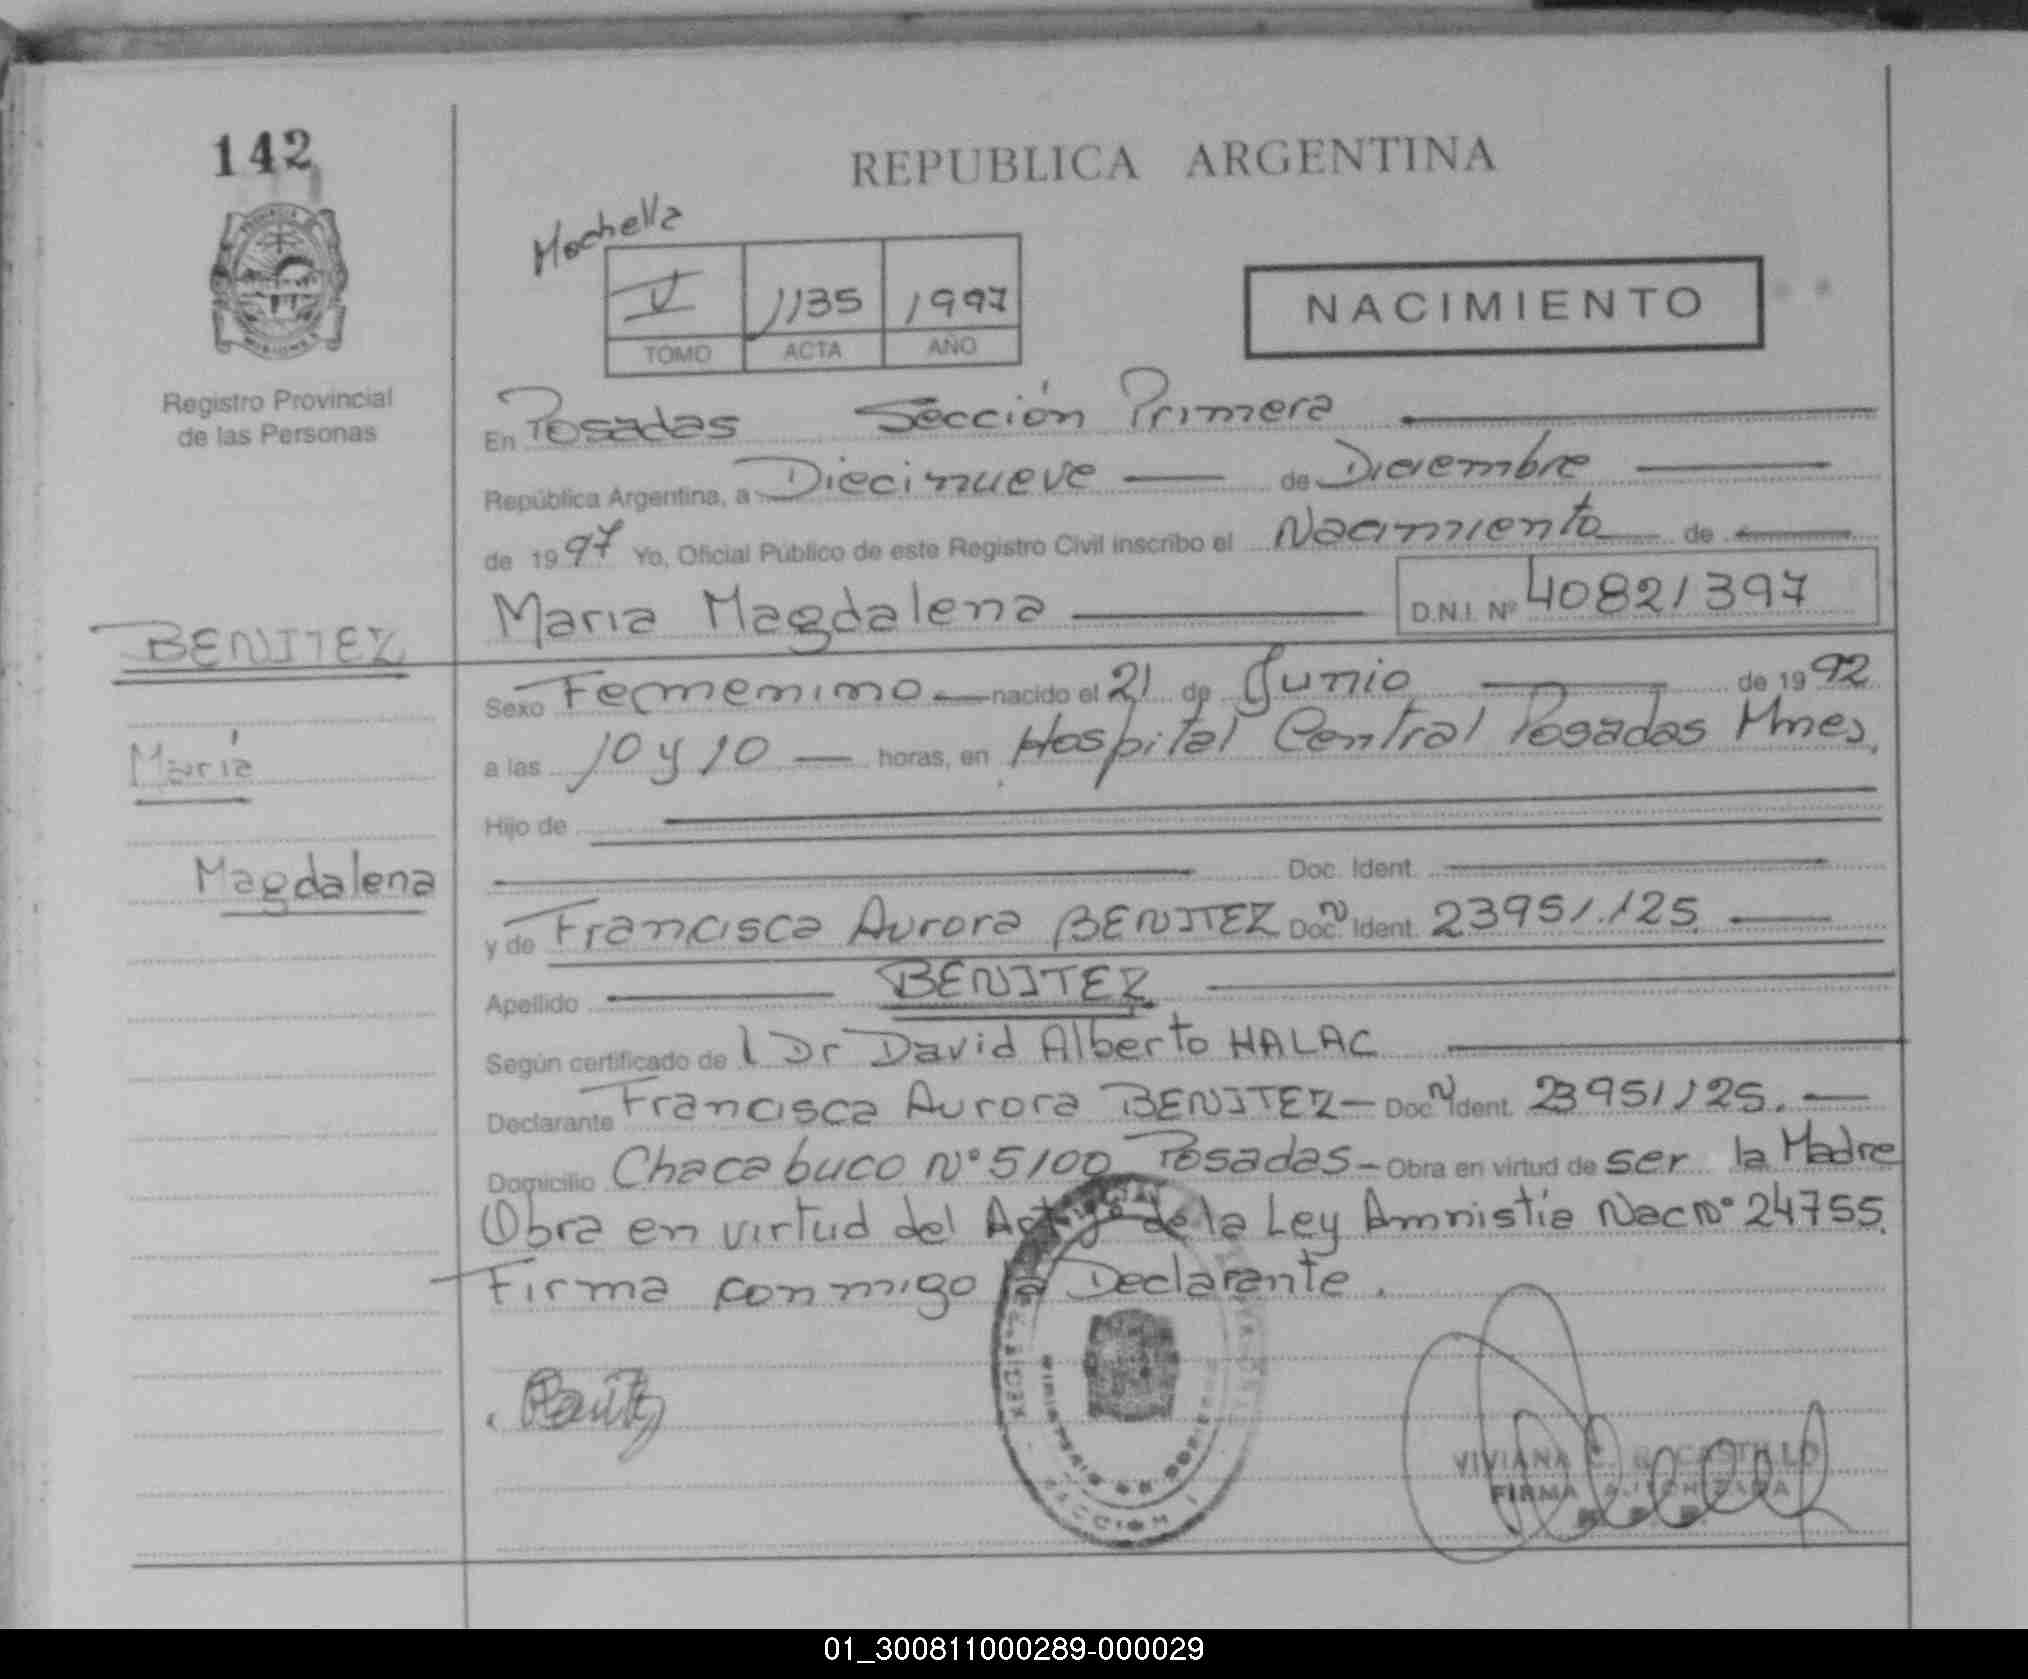 142
REPUBLICA ARGENTINA
Mochella
V 1135 1997
TOMO ACTA AÑO
NACIMIENTO
Registro Provincial
de las Personas
En Posadas Sección Primera
República Argentina, a Diecinueve de Diciembre
de 1997 Yo, Oficial Público de este Registro Civil inscribo el Nacimiento de
Maria Magdalena D.N.I. Nº 40821397
BENITEZ
María
Magdalena
Sexo Femenino nacido el 21 de Junio de 1992
a las 10 y 10 horas, en Hospital Central Posadas Mnes,
Hijo de
Doc. Ident.
y de Francisca Aurora BENITEZ Doc. N Ident. 23951.125
Apellido BENITEZ
Según certificado de l Dr David Alberto HALAC
Declarante Francisca Aurora BENITEZ Doc. N Ident. 23951125.
Domicilio Chacabuco Nº 5100 Posadas Obra en virtud de ser la Madre
Obra en virtud del de la Ley Amnistía Nac Nº 24755.
Firma conmigo la Declarante.
VIVIANA FIRMA AUTORIZADA
SECCION 1
01_300811000289-000029